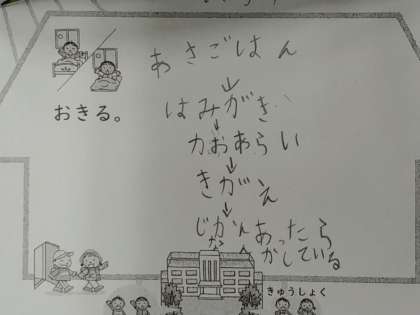 おきる。
あさごはん
↓
はみがき
↓
かおあらい
↓
きがえ
↓
じかんあったら
なんかしている
きゅうしょく